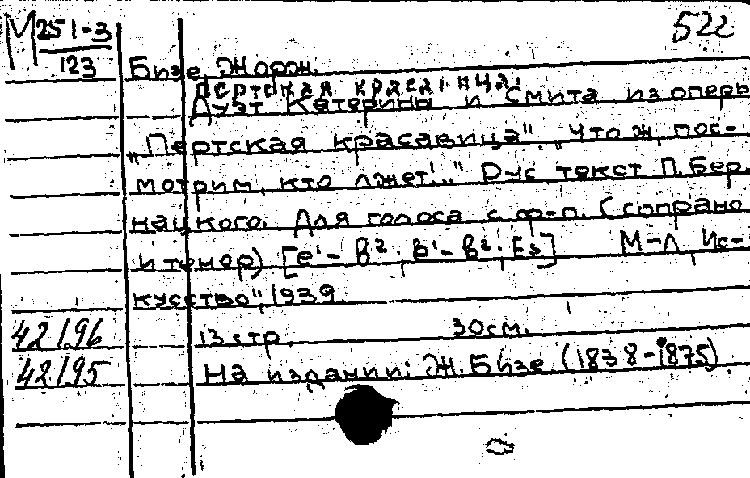 М 251-3
123
522
Бизе, Жорж.
Пертская красавица.
Дуэт Катерины и Смита из оперы
„Пертская красавица". „Что ж, пос-
мотрим, кто лжет!.." Рус текст П. Бер.
нацкого. Для голоса с ф-п. (сопрано
и тенор) [e¹- b²; b¹- b²; Es] М-Л, Ис-
кусство", 1939
42196 13 стр. 30 см.
42195 На издании: Ж. Бизе (1838-1875)